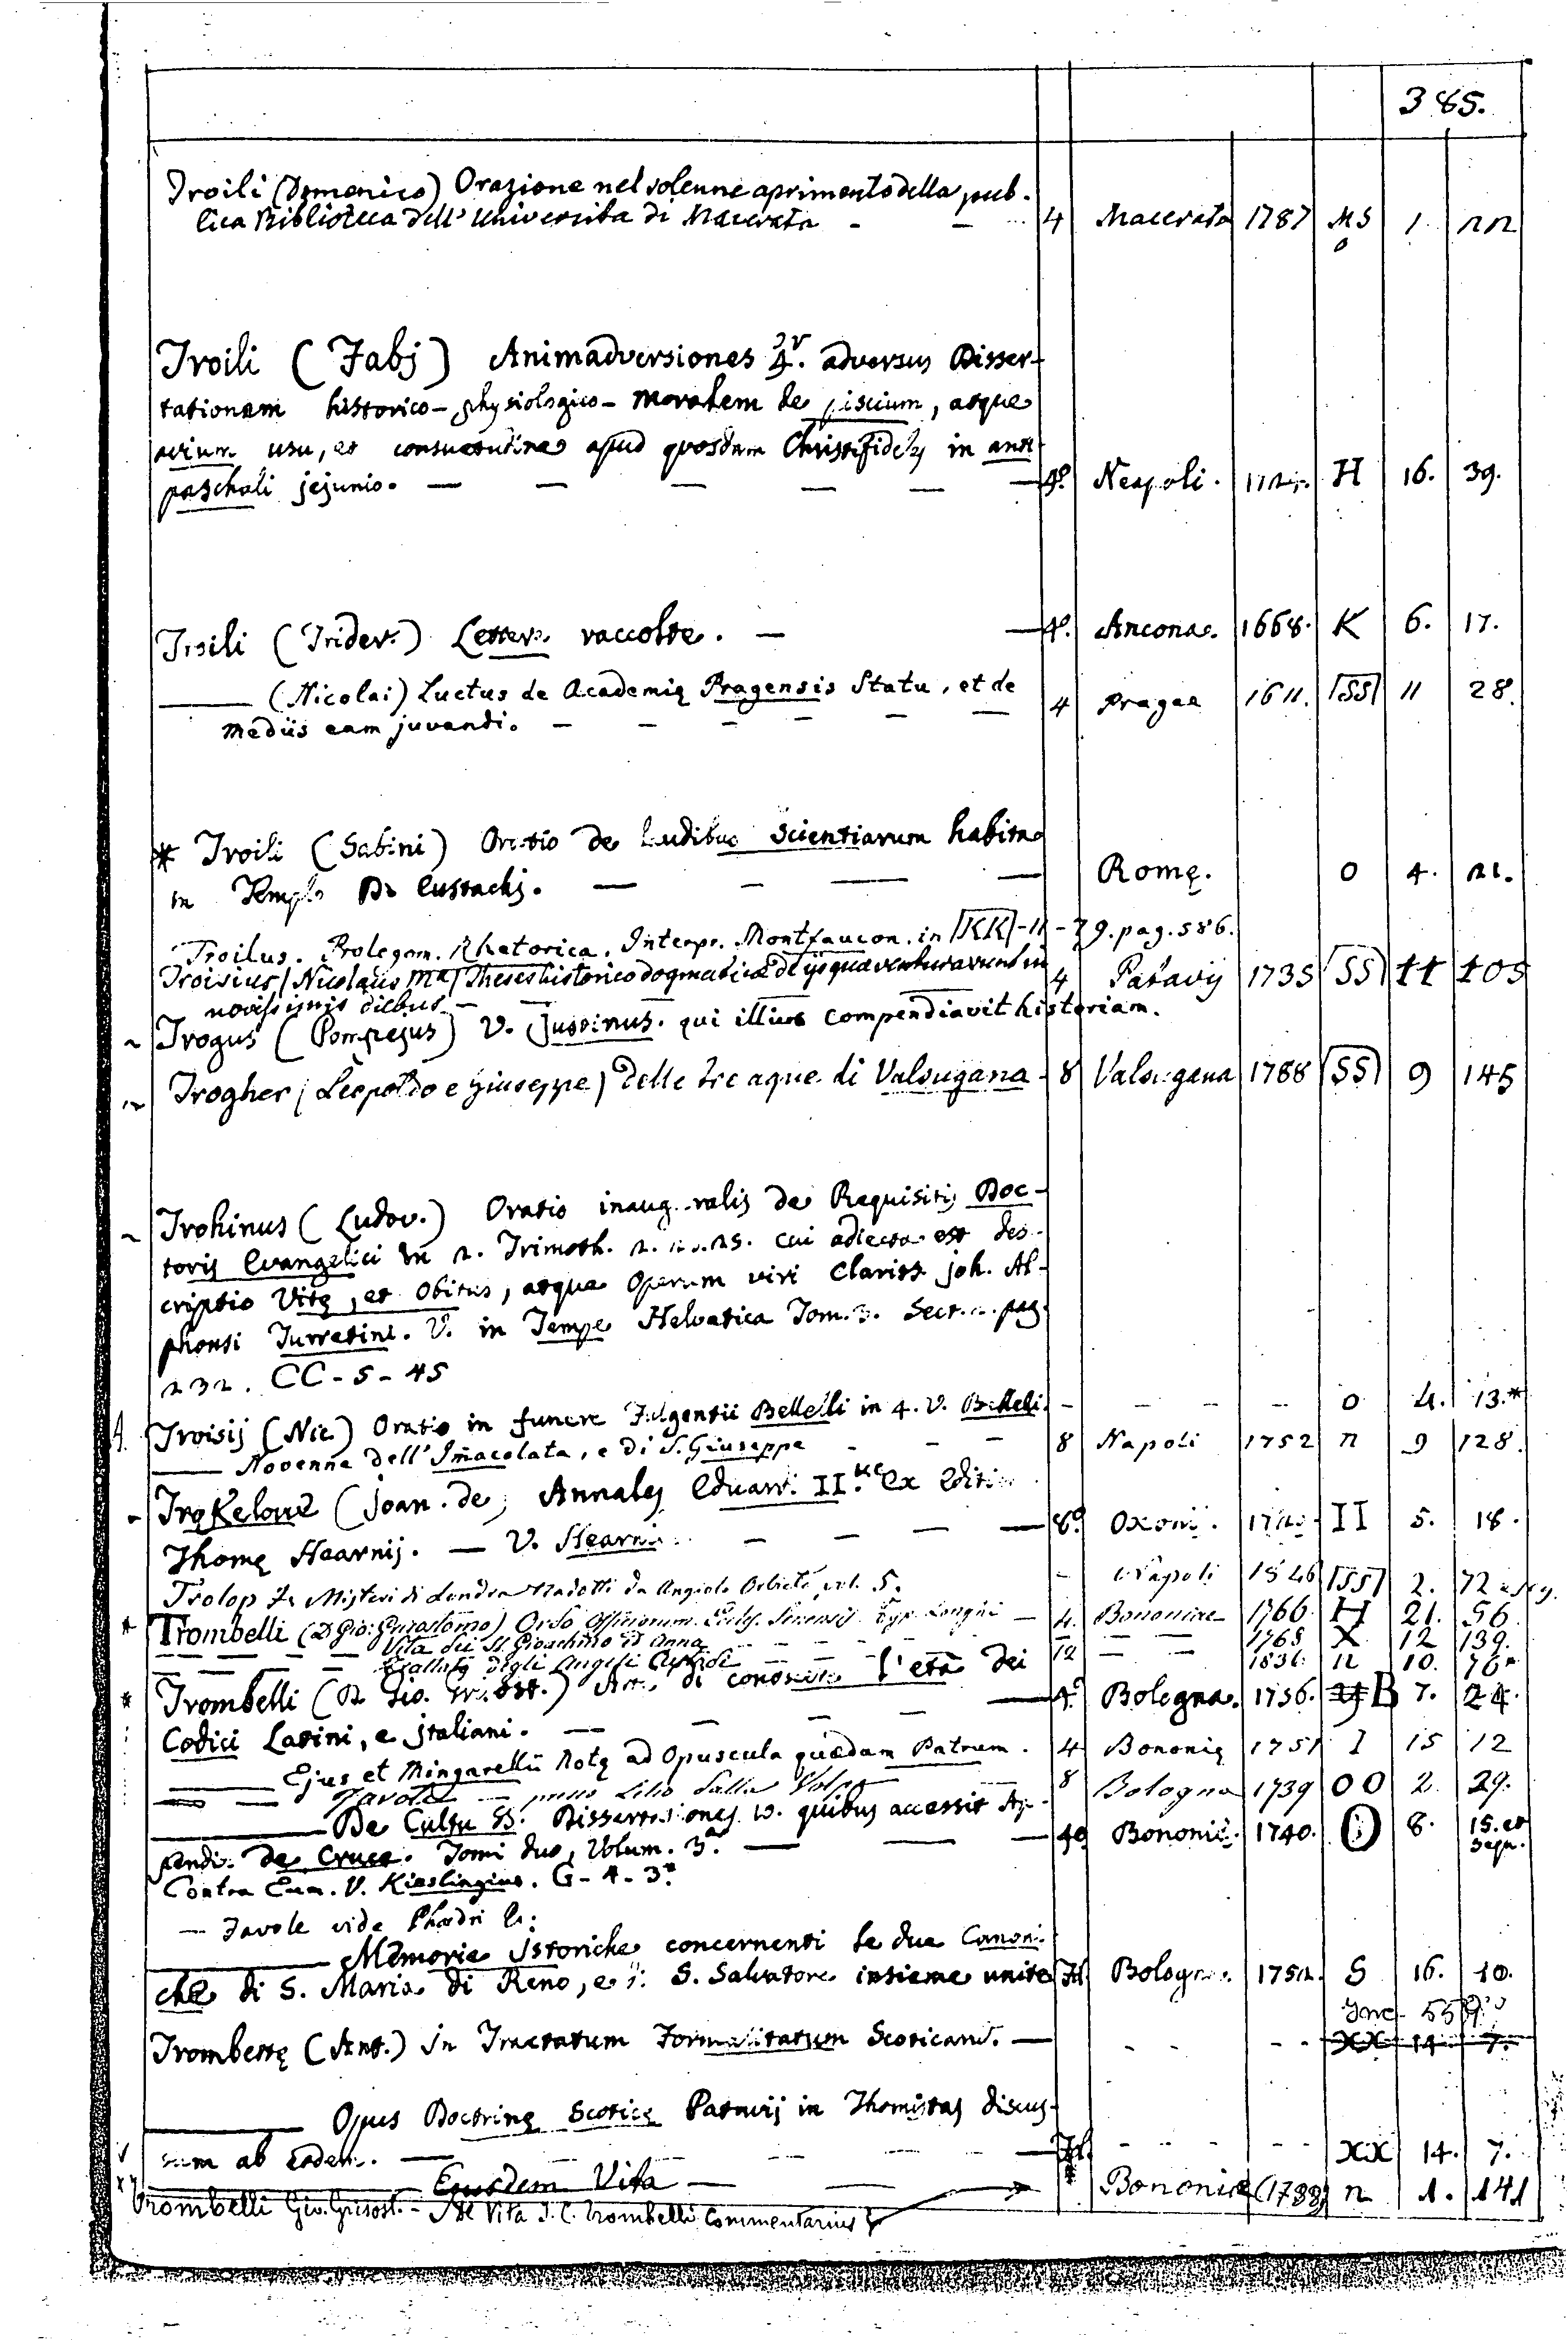 385.
Troili (Domenico) Orazione nel solenne aprimento della pub-
lica Biblioteca dell' Universita di Macerata - - 4 Macerata 1787 MS 1 22
o
Troili (Fabj) Animadversiones adversus Disser-
tationem historico-physiologico-moralem de piscium, atque
avium usu, et consuetudine apud quosdam Christifideles in ante
paschali jejunio. — — — — — — 4º. Neapoli. H 16. 39.
Troili (Frider.) Lettere raccolte. — — 4º. Ancona. 1668. K 6. 17.
—— (Nicolai) Luctus de Academię Pragensis Statu, et de
mediis eam juvandi. - - - - - 4 Pragae 1611. SS 11 28.
* Troili (Sabini) Oratio de laudibus Scientiarum habita
in Templo Di Eustachj. — — — — Romę. O 4. 21.
Troilus. Prolegom. Rhetorica. Interpr. Montfaucon. in KK-11-79. pag. 586.
Troisius (Nicolaus Mª) Theses historico dogmaticae de ijs quae ventura sunt in
novissimis diebus - - - - 4 Patavij 1735 SS 11 105
~ Trogus (Pompejus) V. Justinus. qui illius compendiavit historiam.
~ Trogher (Leopoldo e Giuseppe) Delle tre aque di Valsugana - 8 Valsugana 1788 SS 9 145
~ Trohinus (Ludov.) Oratio inauguralis de Requisitis Doc-
toris Evangelici in 2. Timoth. 2. cui adiecta est des-
criptio Vitę, et Obitus, atque Operum viri Clariss. Joh. Al-
phonsi Turretini. V. in Tempe Helvetica Tom. 3. Sect. pag.
232. CC-5-45
Troisij (Nic.) Oratio in funere Fulgentii Bellelli in 4. V. Bellelli. - - - - O 4. 13.*
—— Novenne dell'Imacolata, e di S. Giuseppe - - - 8 Napoli 1752 n 9 128.
~ Trokelowe (Joan. de) Annales Eduardi II. ex Edit.
Thomę Hearnij. — V. Hearni — — — 8º. Oxonii. II 5. 18.
Trolop Misteri di Londra tradotti da Angiolo Orbieto vol. 5. - Napoli 1846 SS 2. 72 e seg.
* Trombelli (D. Gio: Grisostomo) Ordo Officiorum Eccles. Senensis Typ. Longhi — 4. Bononiae 1766. H 21. 56.
— — — Vita dei SS. Gioachino ed Anna — — 12 — — 1768 X 12 139.
— — — Trattato degli Angeli Custodi — — — 1836. n 10. 76
* Trombelli (D. Gio. Grisost.) Arte di conoscere l'età dei
Codici Latini, e Italiani. — — — — 4º. Bologna. 1756. B 7. 24.
—— Ejus et Mingarellii Notę ad Opuscula quaedam Patrum. 4 Bononię 1751 I 15 12
—— Favole - presso Lelio dalla Volpe 8 Bologna 1739 OO 2. 29.
—— De Cultu SS. Dissertationes 10. quibus accessit Ap-
pendix de Cruce. Tomi duo, Volum. 3ª. — — — 4º Bononię. 1740. O 8. 15. et
sequ.
Contra Eum. V. Kieslingius. G-4-3ª.
— Favole vide Phaedri
—— Memorie Istoriche concernenti le due Canoni-
che di S. Maria di Reno, e di S. Salvatore insieme unite Bologna. 1752. S 16. 10.
Inc. 559
Trombetę (Ant.) in Tractatum Formalitatum Scoticarum. — - - - - XX 14 7.
—— Opus Doctrinę Scoticę Patavij in Thomistas discus-
sum ab eodem. — — - - - — - - - - - XX 14. 7.
—— Ejusdem Vita — — Bononiae (1788) n 1. 141
Trombelli Gio. Grisost. - De Vita J. C. Trombelli Commentarius